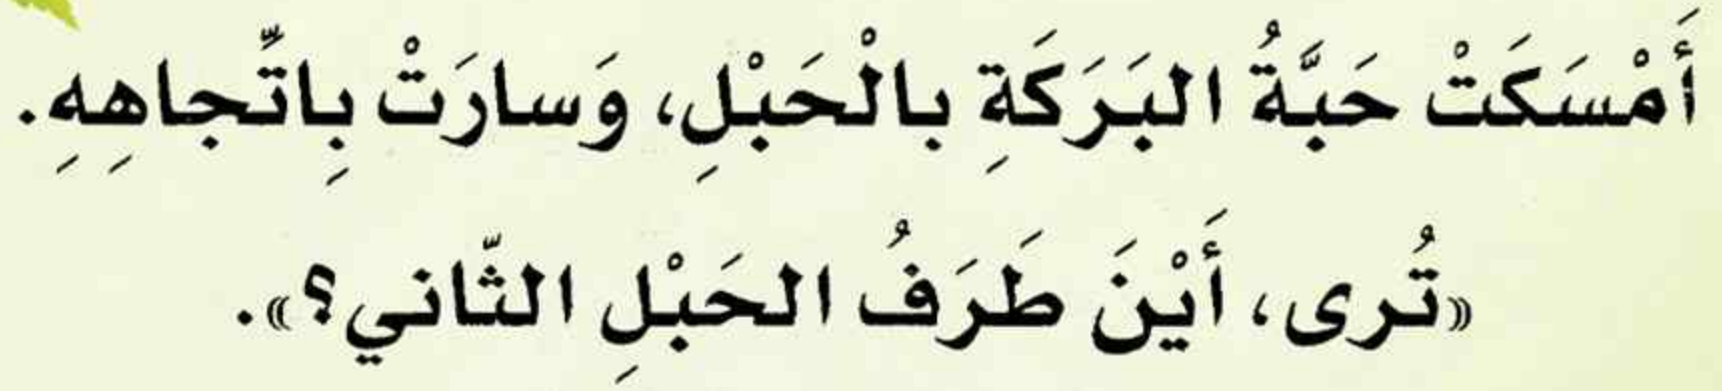 أَمْسَكَتْ حَبَّةُ البَرَكَةِ بالْحَبْلِ، وَسارَتْ بِاتِّجاهِهِ.
«تُرى، أَيْنَ طَرَفُ الحَبْلِ الثّاني؟».